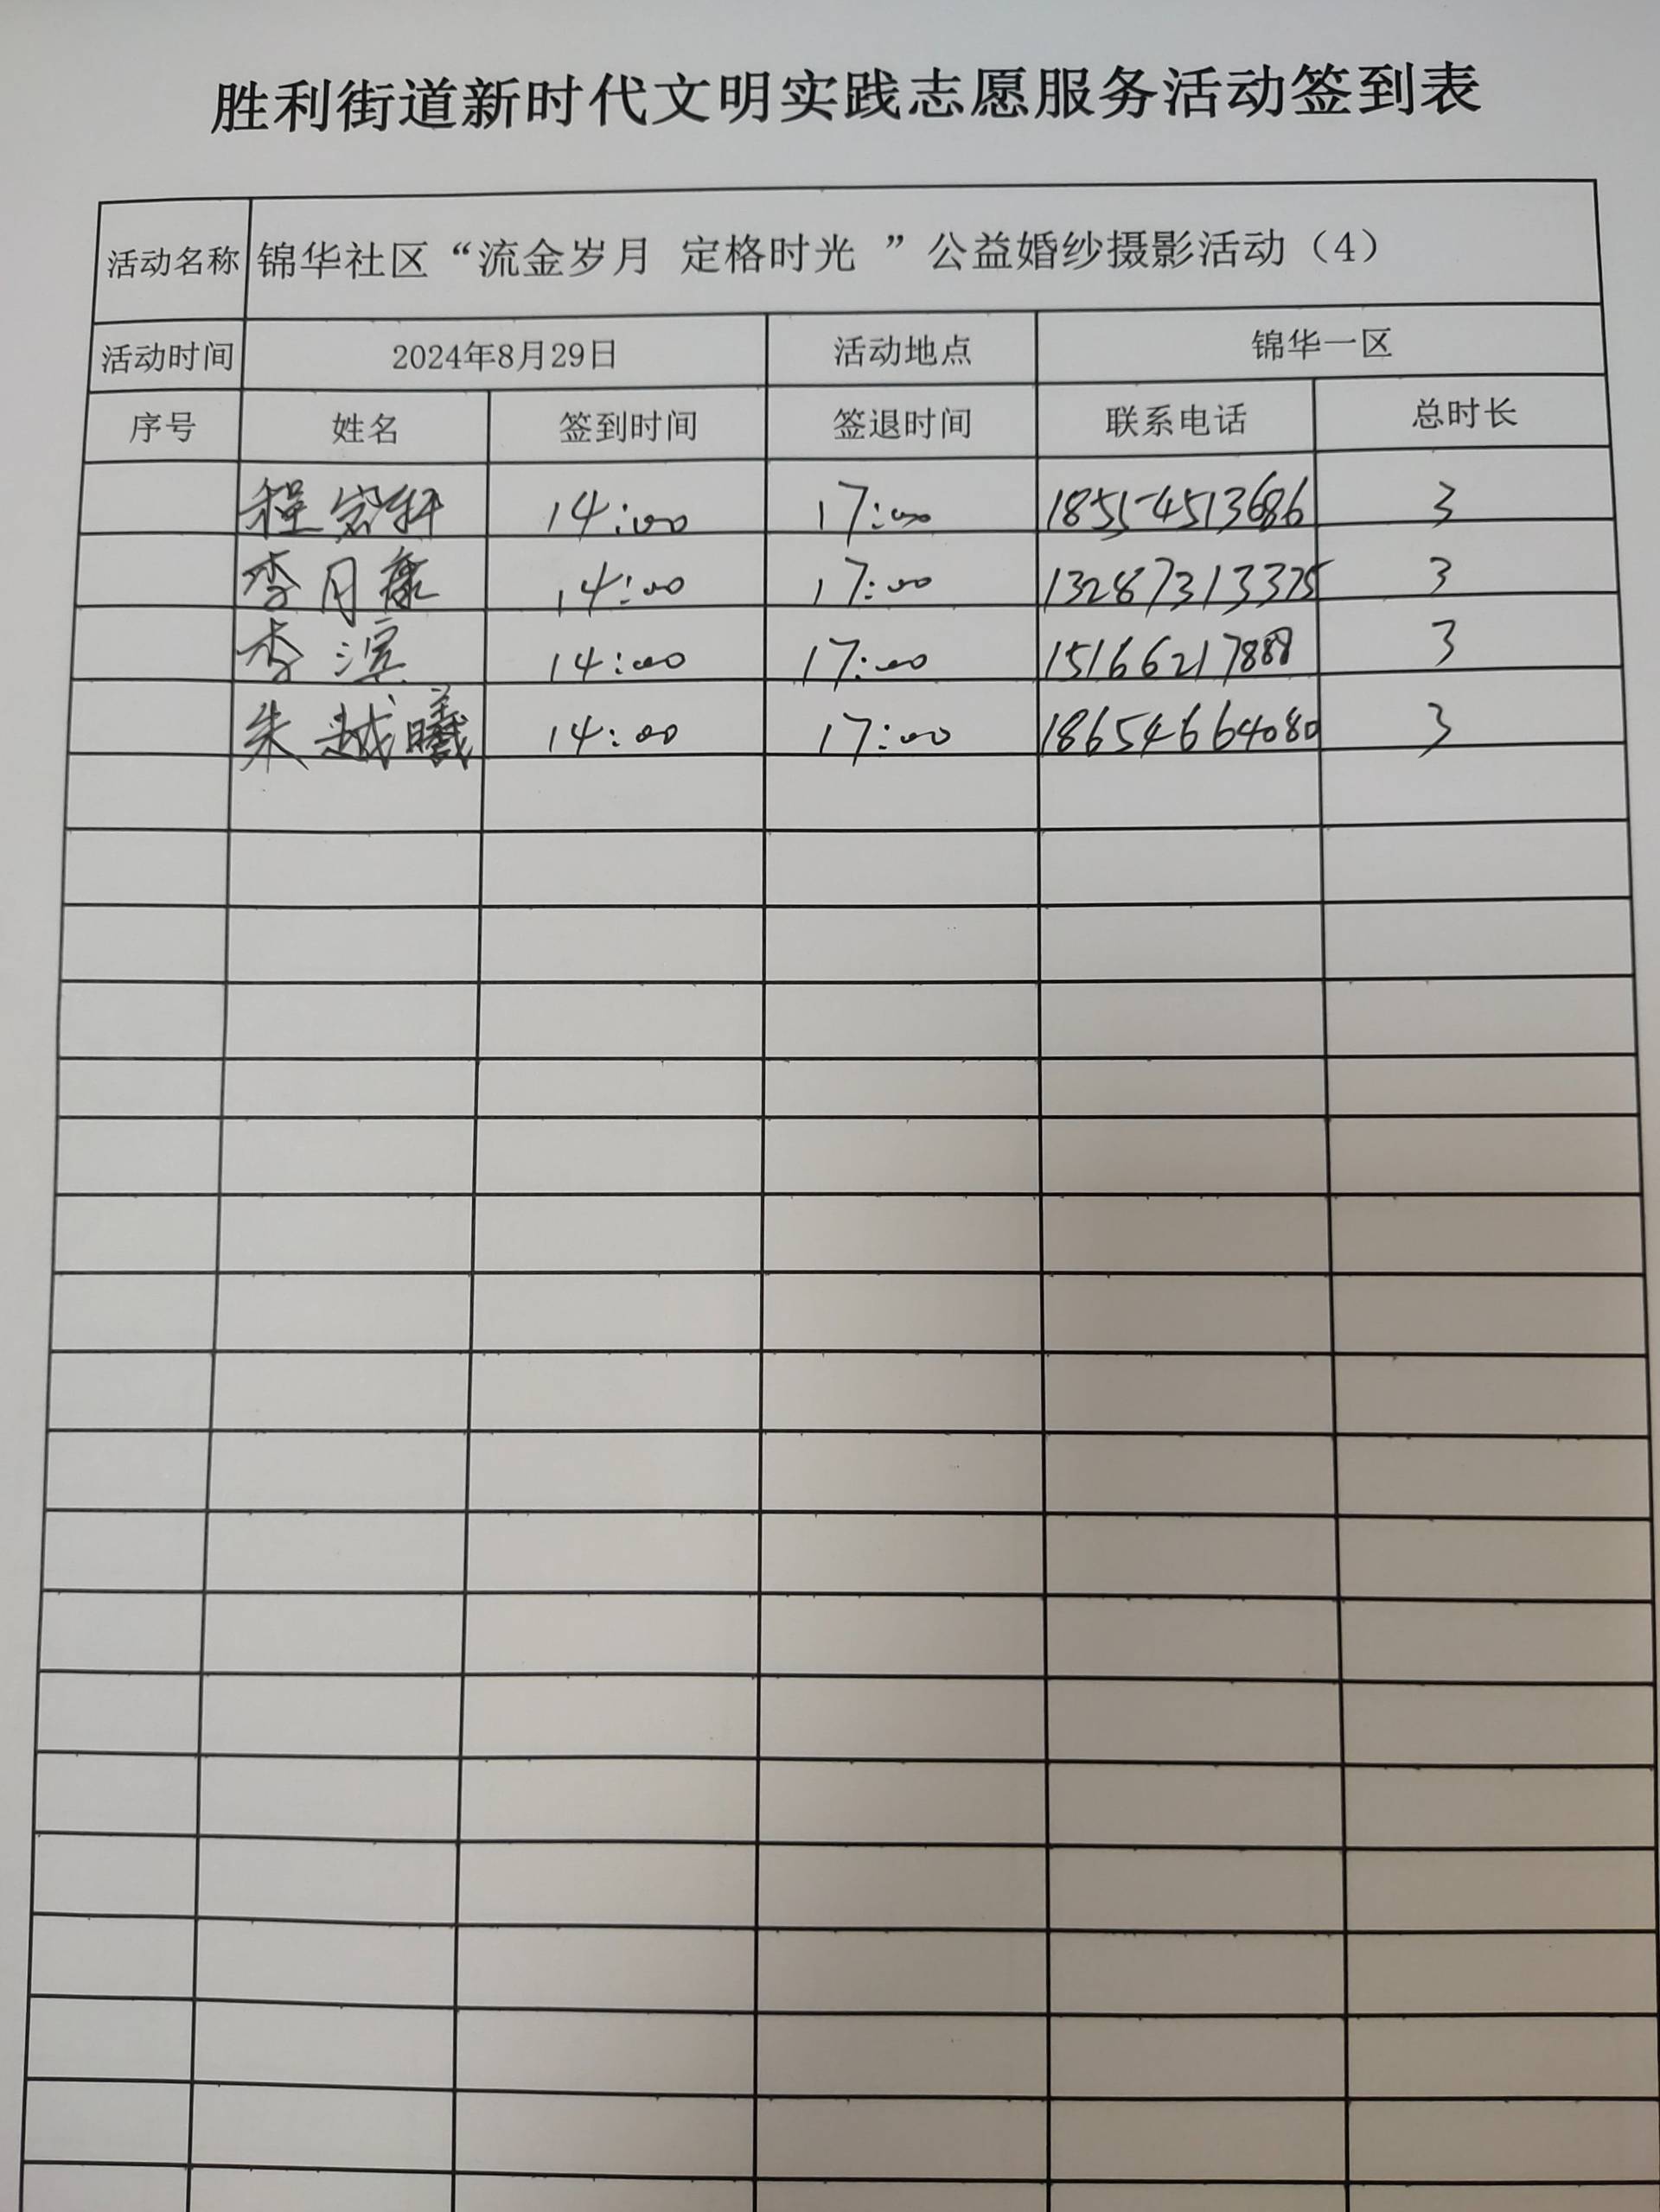 胜利街道新时代文明实践志愿服务活动签到表
活动名称 锦华社区“流金岁月 定格时光 ”公益婚纱摄影活动（4）
活动时间 2024年8月29日 活动地点 锦华一区
序号 姓名 签到时间 签退时间 联系电话 总时长
程 轩 14:00 17:00 18554513686 3
李月康 14:00 17:00 13287313375 3
李滨 14:00 17:00 15166217888 3
朱越曦 14:00 17:00 18654664080 3